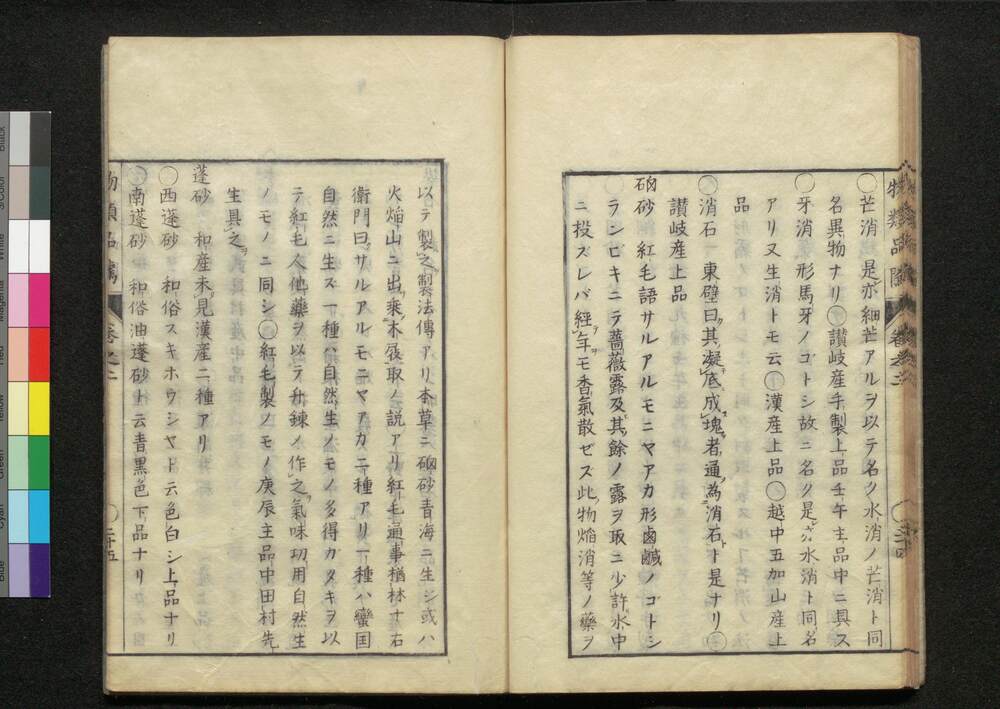 物類品隲 卷之二 二十四
〇芒消 是亦細芒アルヲ以テ名ク水消ノ芒消ト同
名異物ナリ〇讃岐産手製上品壬午主品中ニ具ス
〇牙消 形馬牙ノゴトシ故ニ名ク是亦水消ト同名
アリ又生消トモ云〇漢産上品〇越中五加山産上
品
〇消石 東璧曰其凝底成塊者通為消石ト是ナリ〇
讃岐産上品
硇砂 紅毛語サルアルモニマアカ形鹵鹹ノゴトシ
ランビキニテ薔薇露及其餘ノ露ヲ取ニ少許水中
ニ投ズレバ經年モ香氣散ゼス此物焔消等ノ藥ヲ
以テ製之製法傳アリ本草ニ硇砂青海ニ生シ或ハ
火焔山ニ出乘木屐取ノ説アリ紅毛通事楢林十右
衛門曰サルアルモニマアカ二種アリ一種ハ蠻国
自然ニ生ズ一種ハ自然生ノモノ多得ガタキヲ以
テ紅毛人他藥ヲ以テ升錬ノ作之氣味功用自然生
ノモノニ同シ〇紅毛製ノモノ庚辰主品中田村先
生具之
蓬砂 和産未見漢産二種アリ
〇西蓬砂 和俗スキホウシヤト云色白シ上品ナリ
〇南蓬砂 和俗油蓬砂ト云青黒色下品ナリ
物類品隲 卷之二 〇二十五